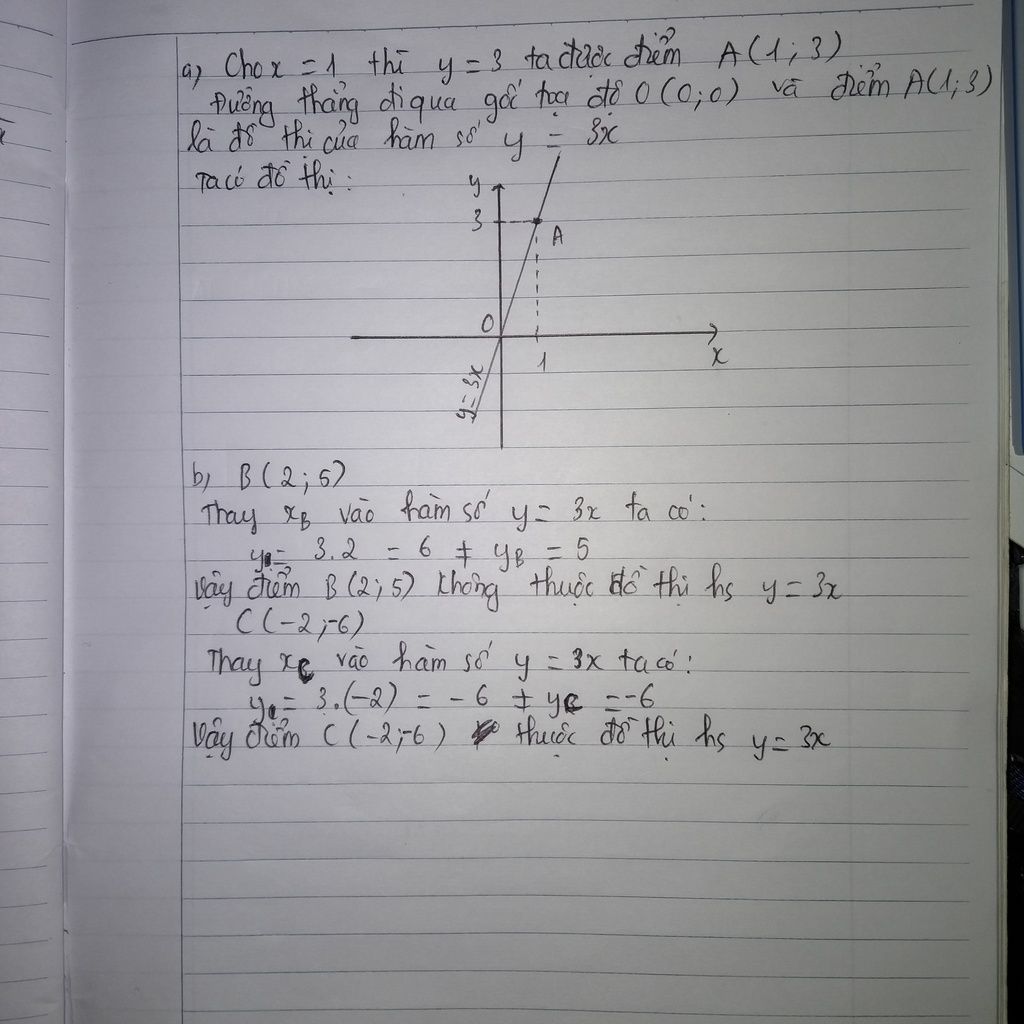 a, Cho x = 1 thì y = 3 ta được điểm A(1; 3)
Đường thẳng đi qua gốc toạ độ O(0; 0) và điểm A(1; 3)
là đồ thị của hàm số y = 3x
Ta có đồ thị:
y
3
A
O
1
x
y = 3x
b, B(2; 5)
Thay xB vào hàm số y = 3x ta có:
y = 3.2 = 6 ≠ yB = 5
Vậy điểm B(2; 5) không thuộc đồ thị hs y = 3x
C(-2; -6)
Thay xC vào hàm số y = 3x ta có:
y = 3.(-2) = -6 ≠ yC = -6
Vậy điểm C(-2; -6) thuộc đồ thị hs y = 3x